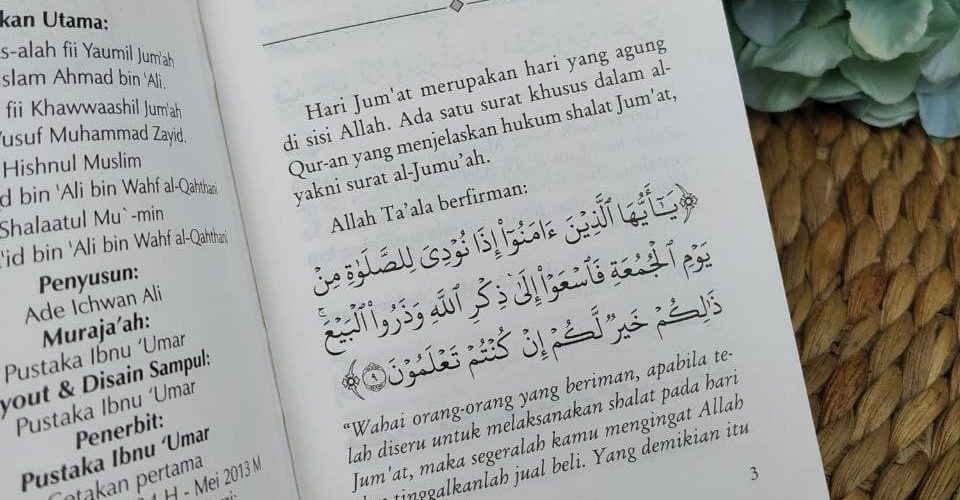 kan Utama:
s-alah fii Yaumil Jum'ah
slam Ahmad bin 'Ali.
fii Khawwaashil Jum'ah
Yusuf Muhammad Zayid.
Hishnul Muslim
d bin 'Ali bin Wahf al-Qahthani
Shalaatul Mu`-min
'id bin 'Ali bin Wahf al-Qahthani
Penyusun:
Ade Ichwan Ali
Muraja'ah:
Pustaka Ibnu 'Umar
yout & Disain Sampul:
Pustaka Ibnu 'Umar
Penerbit:
Pustaka Ibnu 'Umar
Cetakan pertama
H - Mei 2013 M
Hari Jum'at merupakan hari yang agung
di sisi Allah. Ada satu surat khusus dalam al-
Qur-an yang menjelaskan hukum shalat Jum'at,
yakni surat al-Jumu'ah.
Allah Ta'ala berfirman:
﴿يَـٰٓأَيُّهَا ٱلَّذِينَ ءَامَنُوٓا۟ إِذَا نُودِىَ لِلصَّلَوٰةِ مِن
يَوْمِ ٱلْجُمُعَةِ فَٱسْعَوْا۟ إِلَىٰ ذِكْرِ ٱللَّهِ وَذَرُوا۟ ٱلْبَيْعَ ۚ
ذَٰلِكُمْ خَيْرٌ لَّكُمْ إِن كُنتُمْ تَعْلَمُونَ ٩﴾
"Wahai orang-orang yang beriman, apabila te-
lah diseru untuk melaksanakan shalat pada hari
Jum'at, maka segeralah kamu mengingat Allah
dan tinggalkanlah jual beli. Yang demikian itu
3